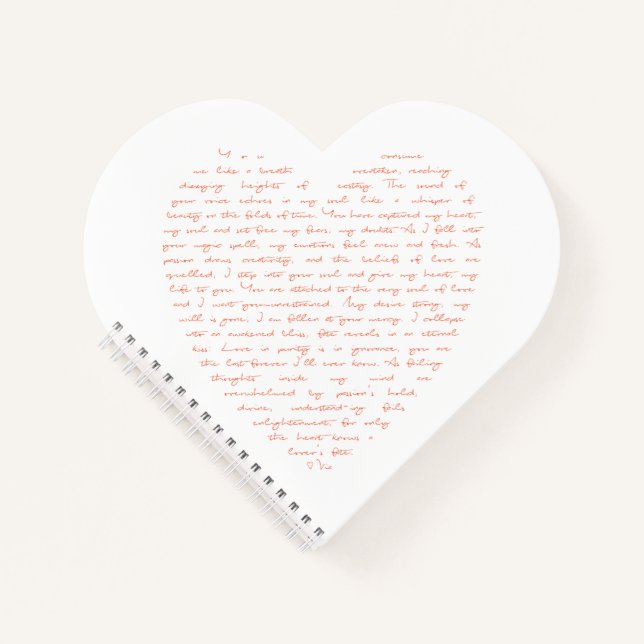 You consume
me like a breath overtaken, reaching
dizzying heights of ecstasy. The sound of
your voice echoes in my soul like a whisper of
beauty on the folds of time. You have captured my heart,
my soul and set free my fears, my doubts. As I fall into
your magic spell, my emotions feel anew and fresh. As
passion draws creativity, and the beliefs of love are
quelled, I step into your soul and give my heart, my
life to you. You are attached to the very soul of love
and I want you—unrestrained. My desire strong, my
will is gone, I am fallen at your mercy. I collapse
into an awakened bliss, fate reveals in an eternal
kiss: Love in purity is in ignorance, you are
the last forever I'll ever know. As failing
thoughts inside my mind are
overwhelmed by passion's hold,
divine, understand-ing foils
enlightenment, for only
the heart knows a
lover's fate.
♡Vic